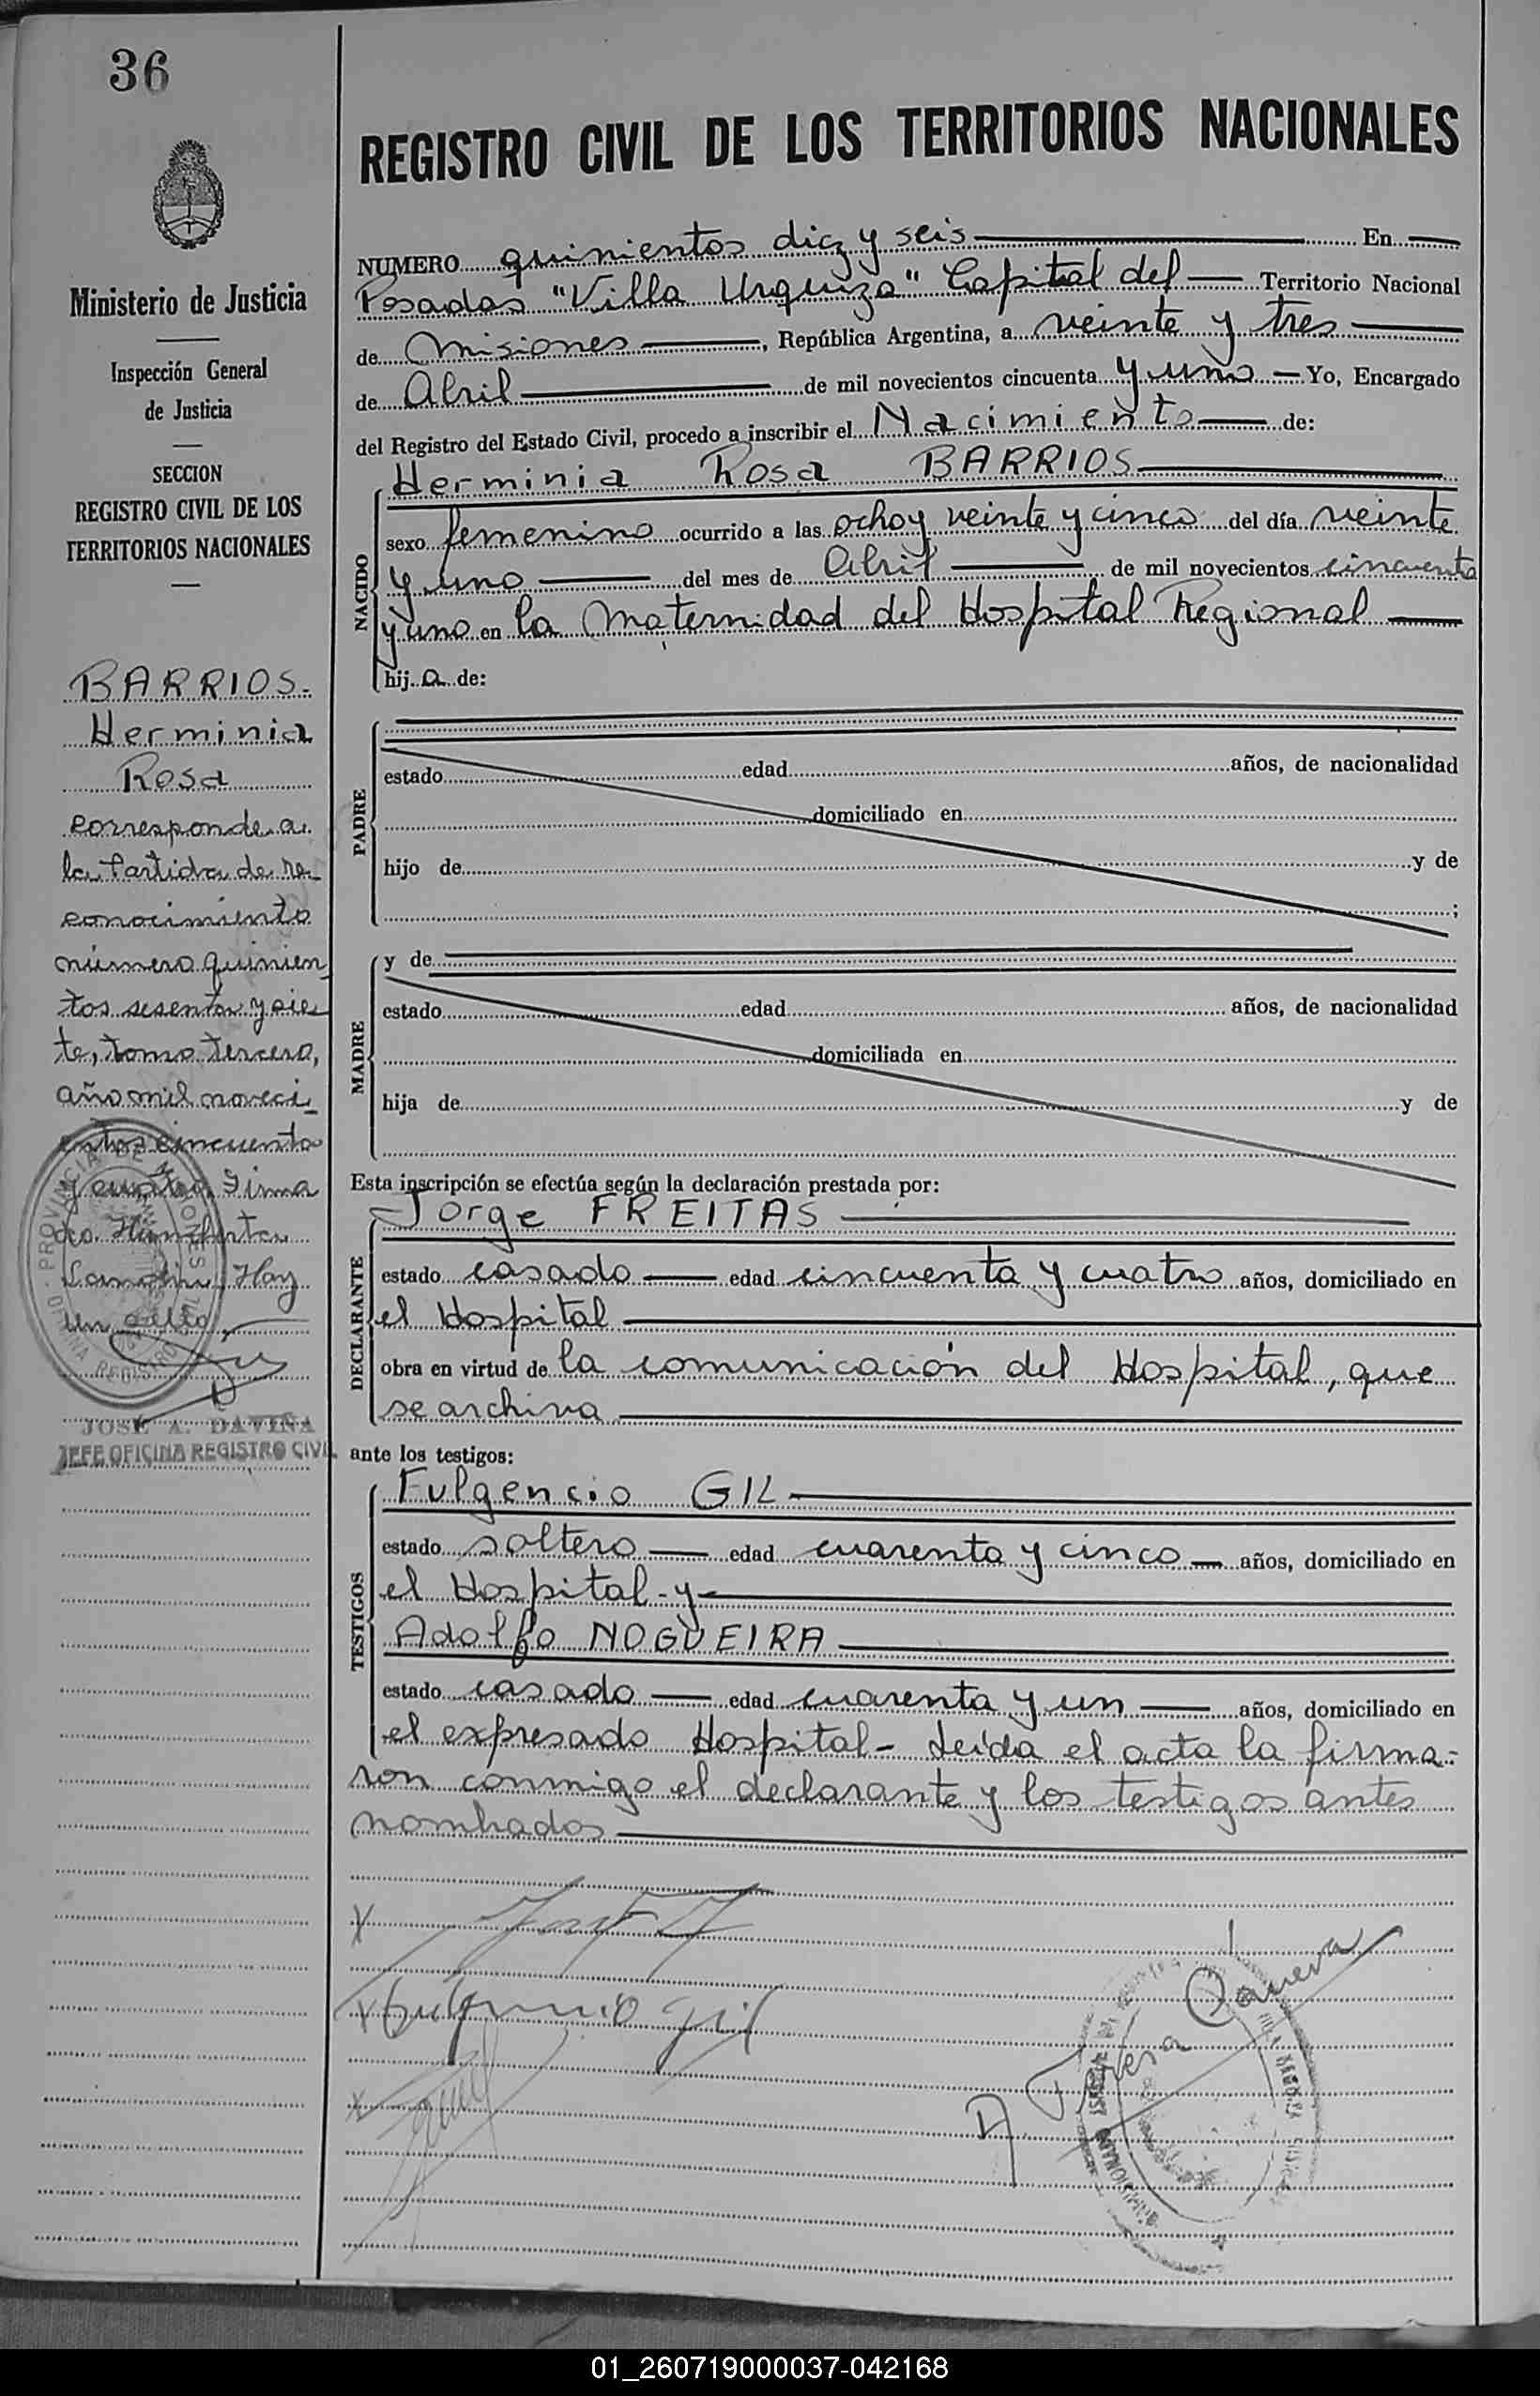 36
REGISTRO CIVIL DE LOS TERRITORIOS NACIONALES
Ministerio de Justicia
Inspección General
de Justicia
SECCION
REGISTRO CIVIL DE LOS
TERRITORIOS NACIONALES
NUMERO quinientos diez y seis En
Posadas "Villa Urquiza" Capital del Territorio Nacional
de Misiones, República Argentina, a veinte y tres
de Abril de mil novecientos cincuenta y uno Yo, Encargado
del Registro del Estado Civil, procedo a inscribir el Nacimiento de:
NACIDO
Herminia Rosa BARRIOS
sexo femenino ocurrido a las ocho y veinte y cinco del día veinte
y uno del mes de Abril de mil novecientos cincuenta
y uno en la Maternidad del Hospital Regional
hija de:
BARRIOS.
Herminia
Rosa
corresponde a
la Partida de re-
conocimiento
número quinien-
tos sesenta y sie-
te, tomo tercero,
año mil noveci-
entos cincuenta
y cuatro Firma
Hay
un sello
PROVINCIA DE MISIONES
JOSE A. DAVIÑA
JEFE OFICINA REGISTRO CIVIL
PADRE
estado edad años, de nacionalidad
domiciliado en
hijo de y de
;
MADRE
y de
estado edad años, de nacionalidad
domiciliada en
hija de y de
Esta inscripción se efectúa según la declaración prestada por:
DECLARANTE
Jorge FREITAS
estado casado edad cincuenta y cuatro años, domiciliado en
el Hospital
obra en virtud de la comunicación del Hospital, que
se archiva
ante los testigos:
TESTIGOS
Fulgencio GIL
estado soltero edad cuarenta y cinco años, domiciliado en
el Hospital - y -
Adolfo NOGUEIRA
estado casado edad cuarenta y un años, domiciliado en
el expresado Hospital - Leída el acta la firma-
ron conmigo el declarante y los testigos antes
nombados
x
x Fulgencio Gil
x
01_260719000037-042168